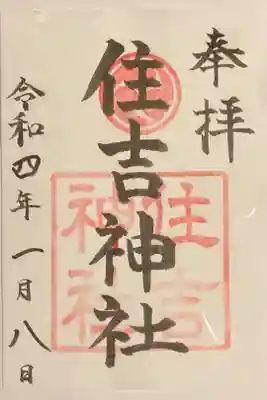 奉拝
住吉神社
住吉
神社
令和四年一月八日